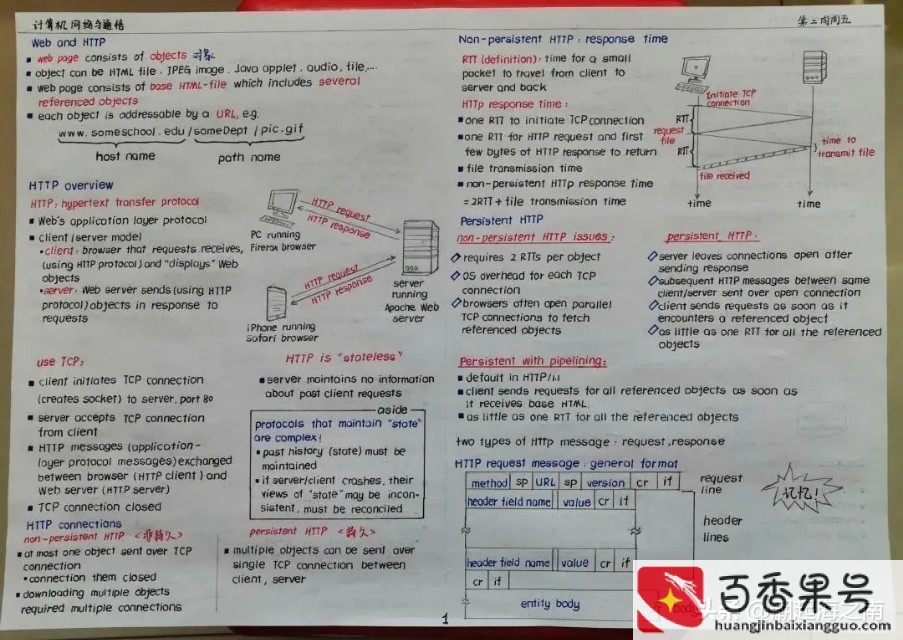 计算机网络与通信
第二周周五
Web and HTTP
▪ web page consists of objects 对象
▪ object can be HTML file. JPEG image. Java applet. audio, file,...
▪ web page consists of base HTML-file which includes several
referenced objects
▪ each object is addressable by a URL, e.g.
www.someschool.edu/someDept/pic.gif
host name
path name
HTTP overview
HTTP: hypertext transfer protocol
▪ Web's application layer protocol
▪ client/server model
•client: browser that requests, receives,
(using HTTP protocol) and "displays" Web
objects
•server: Web server sends (using HTTP
protocol) objects in response to
requests
PC running
Firefox browser
HTTP request
HTTP response
HTTP request
HTTP response
iPhone running
Safari browser
server
running
Apache Web
server
use TCP:
▪ client initiates TCP connection
(creates socket) to server, port 80
▪ server accepts TCP connection
from client
▪ HTTP messages (application-
layer protocol messages) exchanged
between browser (HTTP client) and
Web server (HTTP server)
▪ TCP connection closed
HTTP is "stateless"
▪ server maintains no information
about past client requests
aside
protocols that maintain "state"
are complex!
• past history (state) must be
maintained
• if server/client crashes, their
views of "state" may be incon-
sistent, must be reconciled
HTTP connections
non-persistent HTTP <非持久>
▪ at most one object sent over TCP
connection
•connection them closed
▪ downloading multiple objects
required multiple connections
persistent HTTP <持久>
▪ multiple objects can be sent over
single TCP connection between
client, server
1
Non-persistent HTTP: response time
RTT (definition): time for a small
packet to travel from client to
server and back
HTTP response time:
▪ one RTT to initiate TCP connection
▪ one RTT for HTTP request and first
few bytes of HTTP response to return
▪ file transmission time
▪ non-persistent HTTP response time
=2RTT+ file transmission time
initiate TCP
connection
RTT
request
file
RTT
file received
time to
transmit file
time
time
Persistent HTTP
non-persistent HTTP issues:
◇requires 2 RTTs per object
◇OS overhead for each TCP
connection
◇browsers often open parallel
TCP connections to fetch
referenced objects
persistent HTTP:
◇server leaves connections open after
sending response
◇subsequent HTTP messages between same
client/server sent over open connection
◇client sends requests as soon as it
encounters a referenced object
◇as little as one RTT for all the referenced
objects
Persistent with pipelining:
▪ default in HTTP/1.1
▪ client sends requests for all referenced objects as soon as
it receives base HTML
▪ as little as one RTT for all the referenced objects
two types of HTTP message: request, response
HTTP request message: general format
method sp URL sp version cr if
header field name value cr if
header field name value cr if
cr if
entity body
request
line
header
lines
body
记忆!
百香果号
huangjinbaixiangguo.com